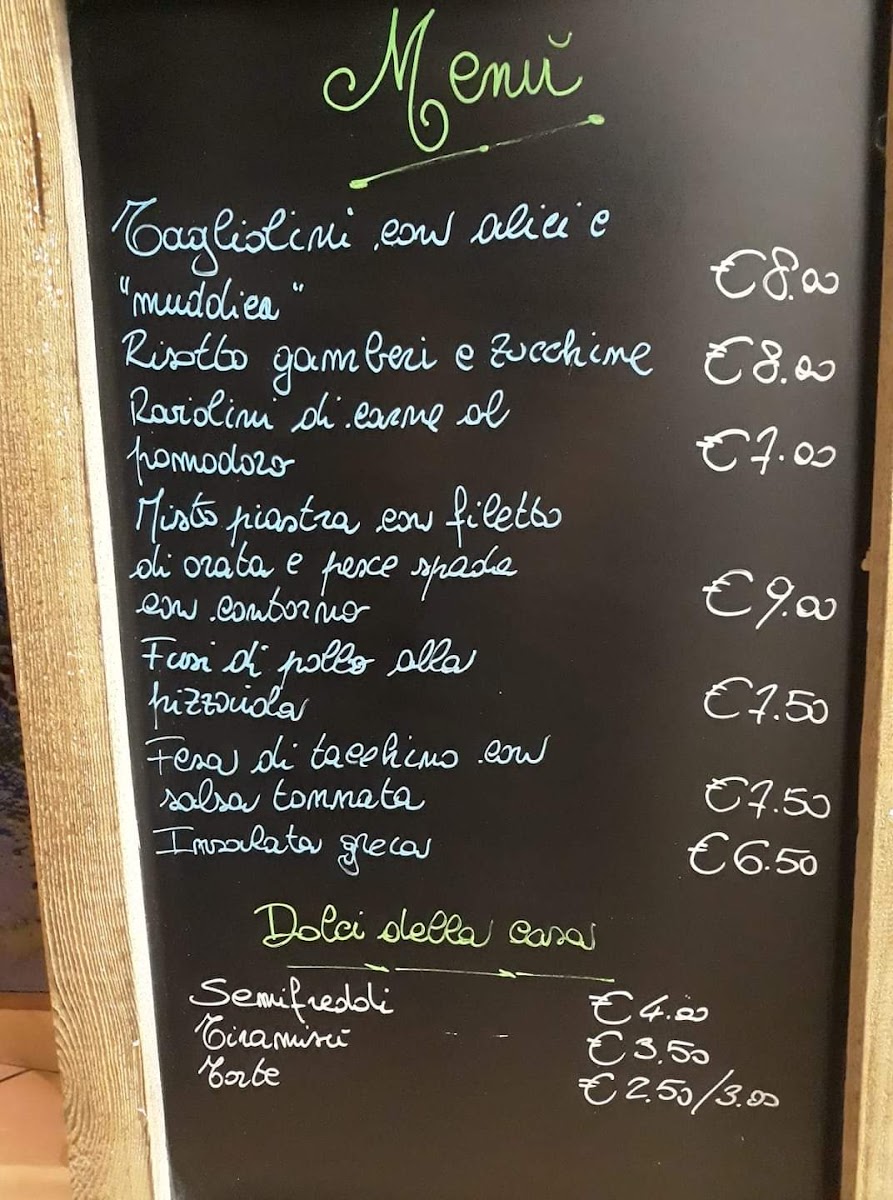 Menù
Tagliolini con alici e
"muddica"
€8.00
Risotto gamberi e zucchine €8.00
Raviolini di carne al
pomodoro
€7.00
Misto piastra con filetto
di orata e pesce spada
con contorno €9.00
Fusi di pollo alla
pizzaiola €7.50
Fesa di tacchino con
salsa tonnata €7.50
Insalata greca €6.50
Dolci della casa
Semifreddi €4.00
Tiramisù €3.50
Torte €2.50/3.00